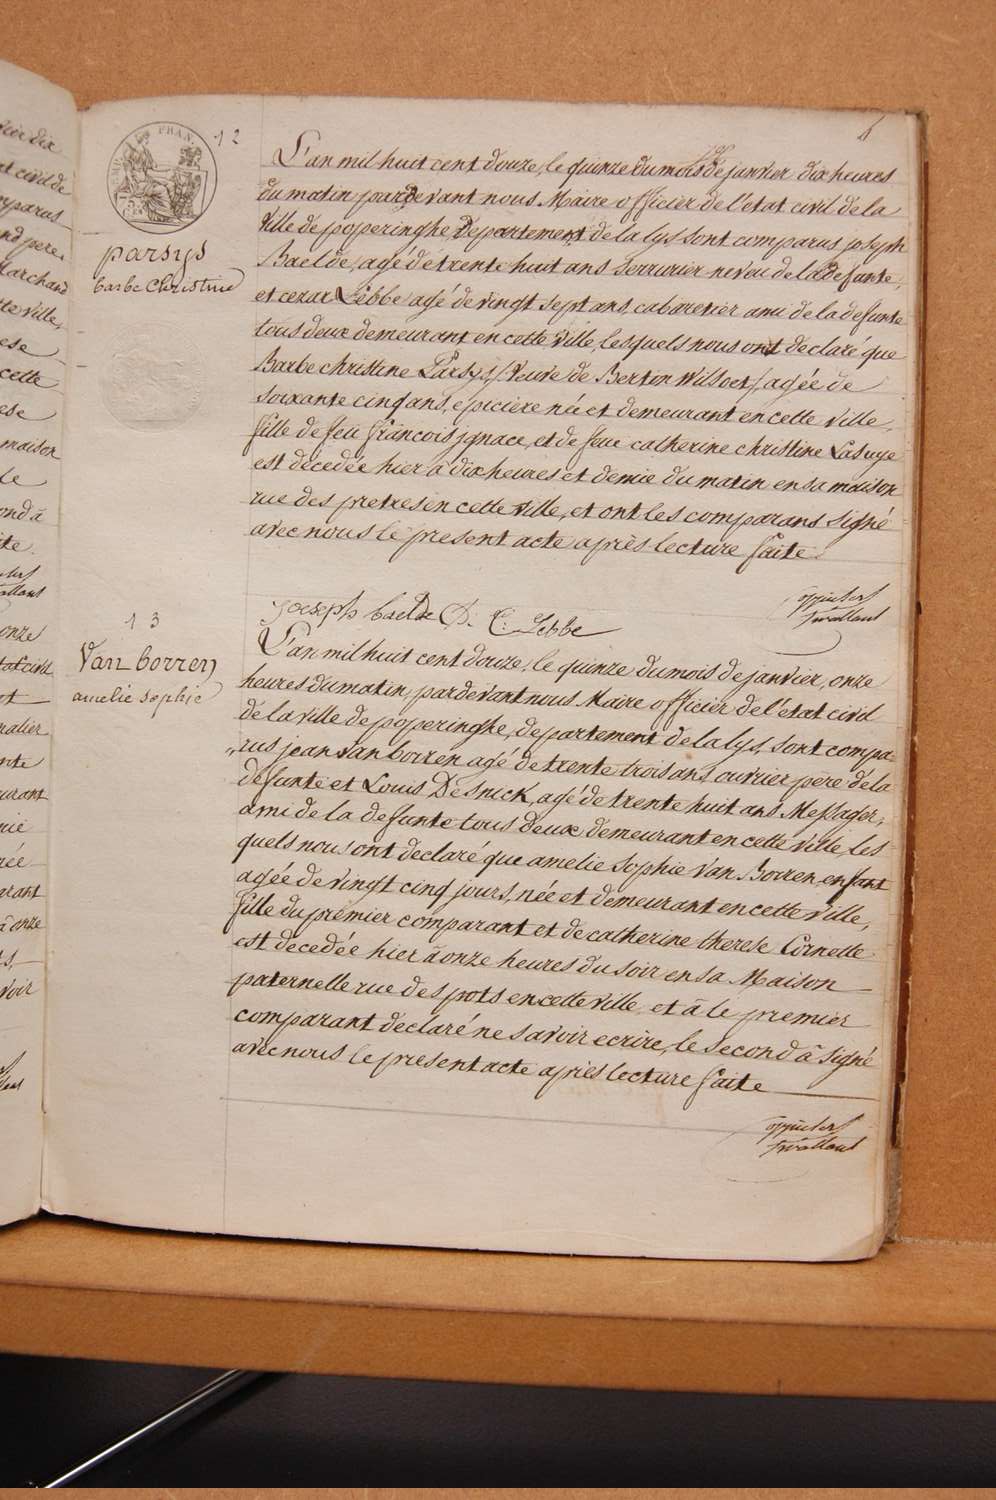 12
parsys
barbe Christine
L'an mil huit cent douze, le quinze du mois de janvier dix heures
du matin pardevant nous Maire officier de l'etat civil de la
Ville de poperinghe Departement de la lys sont comparus joseph
Baelde, agé de trente huit ans Serrurier neveu de la defunte,
et cezar Lebbe agé de vingt sept ans, cabaretier ami de la defunte
tous deux demeurant en cette Ville, lesquels nous ont declaré que
Barbe christine Parsys, Veuve de Bertin Wilsoet, agée de
soixante cinq ans, epiciere née et demeurant en cette Ville,
fille de feu francois jgnace, et de feue catherine christine Lasuye
est decedée hier à dix heures et demie du matin en sa maison
rue des pretres en cette Ville, et ont les comparans signé
avec nous le present acte après lecture faite.
joeseph baelde C. Lebbe
13
Van borren
amelie sophie
L'an mil huit cent douze, le quinze du mois de janvier, onze
heures du matin, pardevant nous Maire officier de l'etat civil
de la ville de poperinghe, departement de la lys, sont compa-
rus jean Van borren agé de trente trois ans ouvrier pere de la
defunte et Louis Desnick, agé de trente huit ans Messager,
ami de la defunte tous deux demeurant en cette Ville, les-
quels nous ont declaré que amelie Sophie Van Borren, enfant
agée de vingt cinq jours, née et demeurant en cette Ville,
fille du premier comparant et de catherine therese Cornette
est decedée hier à onze heures du soir en sa Maison
paternelle rue des pots en cette Ville, et à le premier
comparant declaré ne savoir ecrire, le second à signé
avec nous le present acte après lecture faite